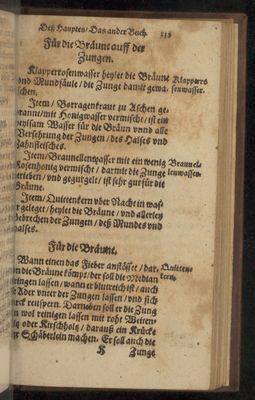 Deß Haupten/ Das ander Buch.
Für die Bräune auff der
Zungen.
Klapperrosenwasser heylet die Bräune
vnd Mundfäule/ die Zunge damit gewa-
schen.
Klappers
senwasser.
Item/ Borragenkraut zu Aschen ge-
brannt/ mit Honigwasser vermischt/ ist ein
heylsam Wasser für die Bräun vnnd alle
Versehrung der Zungen/ des Halses vnd
Zahnfleisches.
Item/ Braunellenwasser mit ein wenig
Rosenhonig vermischt/ darmit die Zunge
gerieben/ vnd gegurgelt/ ist sehr gut für die
Bräune.
Braunel-
lenwasser.
Item/ Quittenkern vber Nacht in was-
ser geleget/ heylet die Bräune/ vnd allerley
gebrechen der Zungen/ deß Mundes vnd
Halses.
Für die Bräune.
Wann einen das Fieber anstösset/ dar-
in die Bräune kömpt/ der soll die Median
springen lassen/ wann er blutreich ist/ auch
die Ader vnter der Zungen lassen/ vnd sich
starck reuspern. Darneben soll er die Zung
wol reinigen lassen mit roht Weiten-
oder Kirschholtz/ darauß ein Krücke
Schäberlein machen. Er soll auch die
Quitten-
kern.
K Zunge